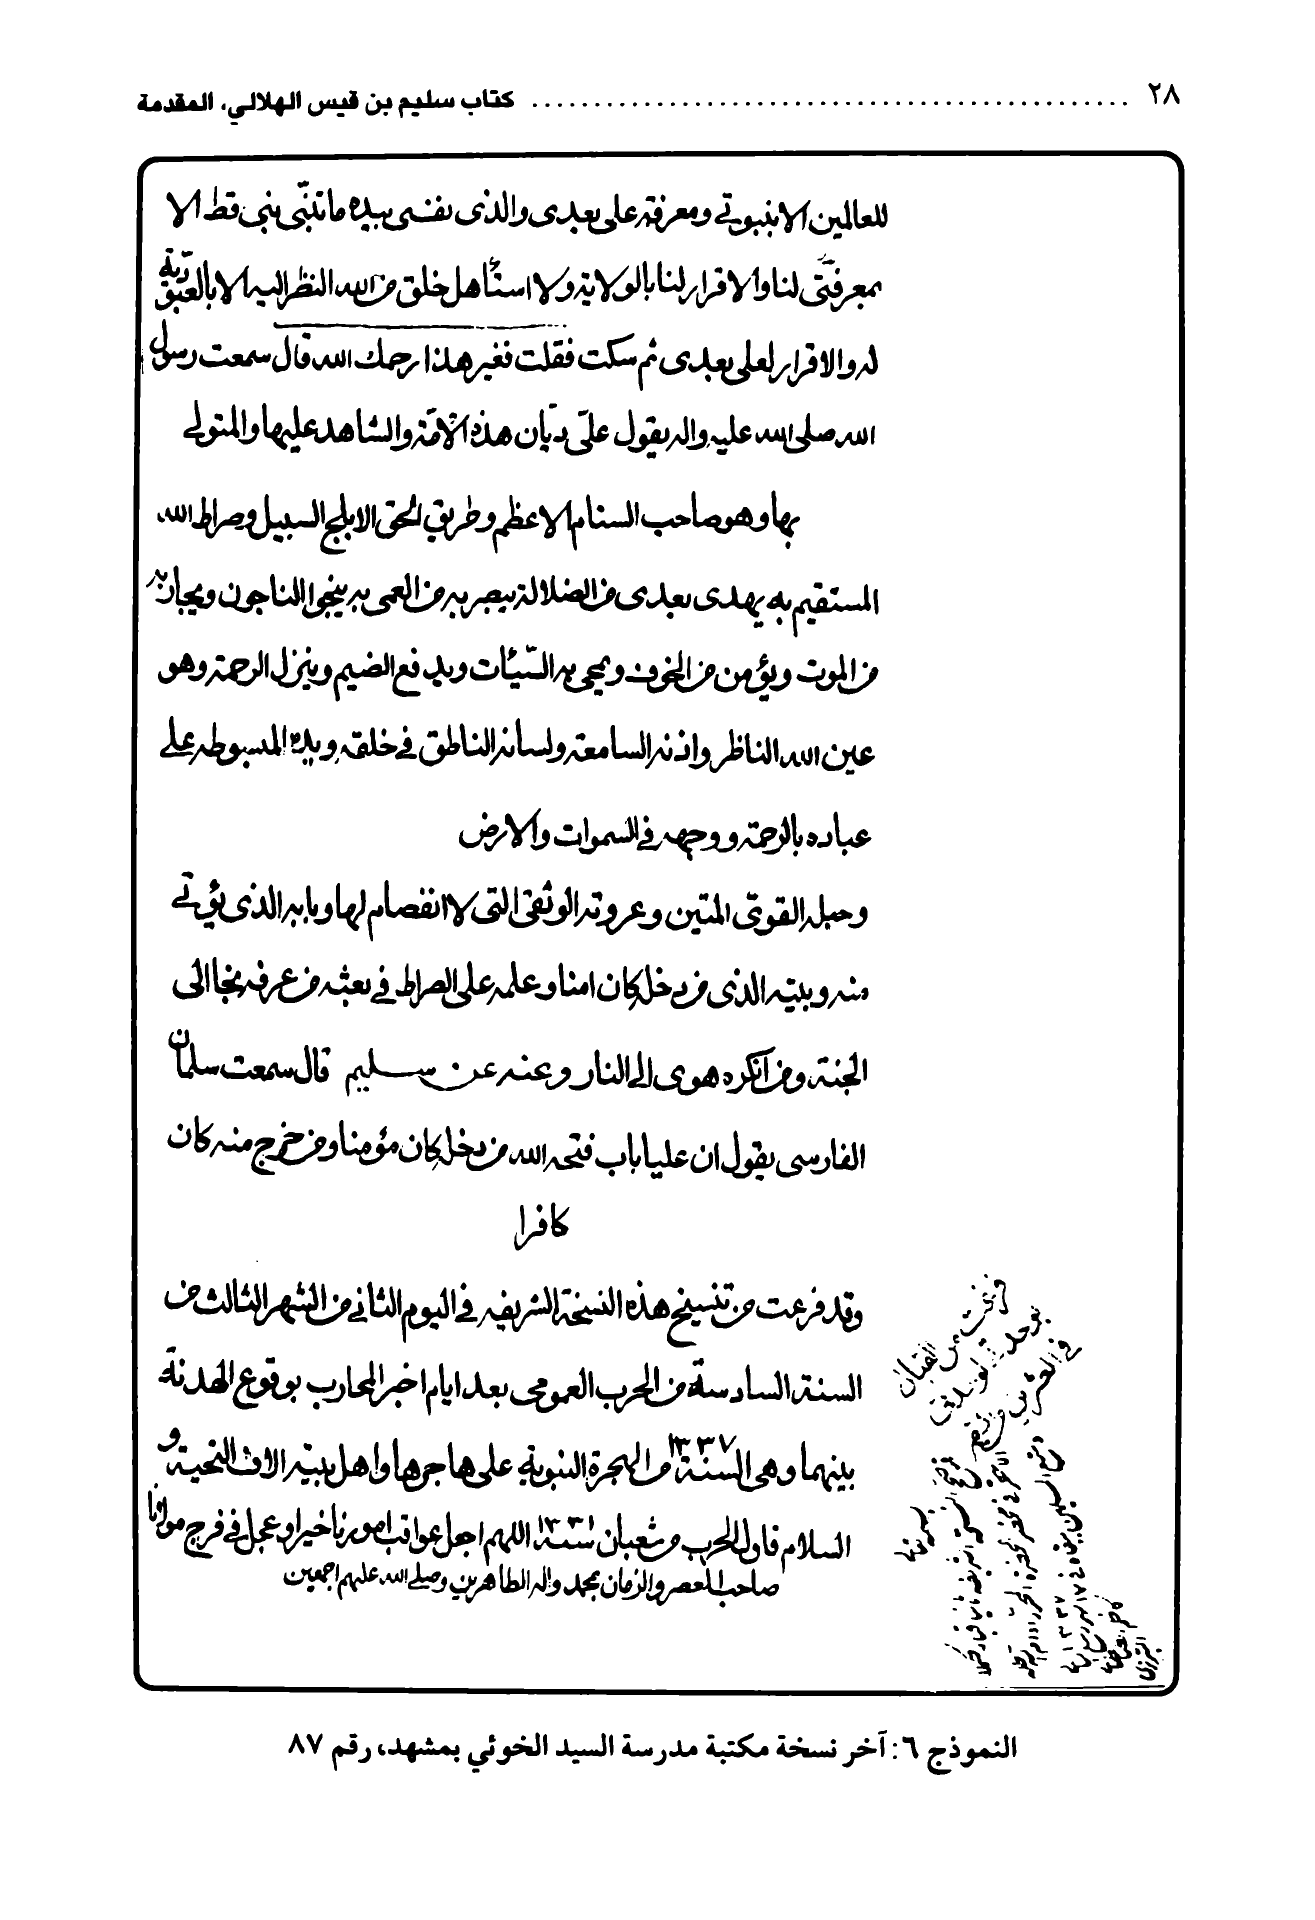 ٢٨ ........................................................ كتاب سليم بن قيس الهلالي، المقدمة
للعالمين الا بنبوتي ومعرفته على بعدى والذى نفسى بيده ما تنبّى نبى قط الا
بمعرفتى لنا والاقرار لنا بالولاية ولا استاهل خلق من الله النظر اليه الا بالعبوديّة
له والاقرار لعلى بعدى ثم سكت فقلت فغير هذا رحمك الله قال سمعت رسول
الله صلى الله عليه واله يقول علىّ ديّان هذه الامّة والشاهد عليها والمتولي
بها وهو صاحب السنام الاعظم وطريق الحق الابلج السبيل وصراط الله
المستقيم به يهدى بعدى من الضلالة يبصر به من العمى به ينجوا الناجون ويجار به
من الموت ويؤمن من الخوف ويمحى به السّيئات ويدفع الضيم وينزل الرحمة وهو
عين الله الناظر واذنه السامعة ولسانه الناطق في خلقه ويده المبسوطه على
عباده بالرحمة ووجهه في السموات والارض
وحبله القوىّ المتين وعروته الوثقى التى لا انفصام لها وبابه الذى يؤتي
منه وبيته الذى من دخله كان امنا وعلمه على الصراط في بعثه من عرفه نجا الى
الجنة ومن انكره هوى الى النار وعنه عن سليم قال سمعت سلمان
الفارسى يقول ان عليا باب فتحه الله من دخله كان مؤمنا ومن خرج منه كان
كافرا
وقد فرعت من تنسيخ هذه النسخة الشريفه في اليوم الثاني من الشهر الثالث من
السنة السادسة من الحرب العمومى بعد ايام اخبر المحارب بوقوع الهدنة
بينهما وهى السنة ١٣٣٧ من الهجرة النبوية على هاجرها واهل بيته الاف التحية و
السلام فاول الحرب من شعبان سنة ١٣٣١ اللهم اجعل عواقب امورنا خيرا وعجل في فرج مولانا
صاحب العصر والزمان بمحمد واله الطاهرين وصلى الله عليهم اجمعين
فرغت من
في العشرين
١٣٣٧
النموذج ٦: آخر نسخة مكتبة مدرسة السيد الخوئي بمشهد، رقم ٨٧